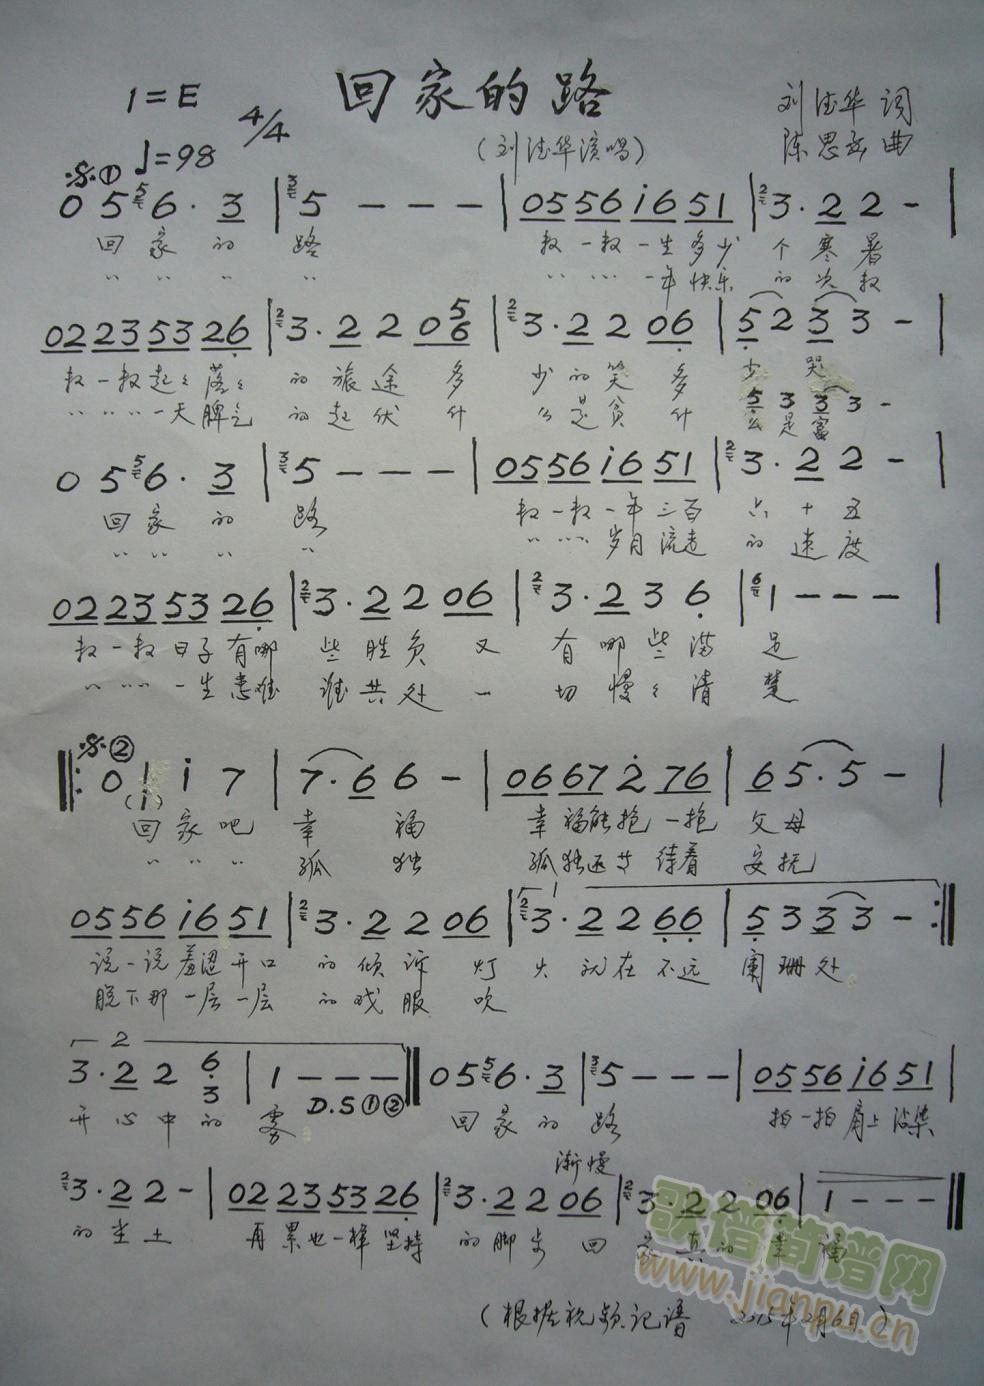 回家的路
1=E 4/4
♩=98
刘德华 词
(刘德华演唱)
陈思 曲
𝄋①
0 5 5 6· 3 | 3 5 - - - | 05 56 i6 51 | 2 3· 2 2 - |
回家的 路 数一数一生多少 个寒暑
〃〃〃 〃 〃〃〃一年快乐 的次数
02 23 53 26 | 2 3· 2 2 0 5 6 | 2 3· 2 2 06 | 5 2 3 3 - |
数一数起々落々 的旅途 多 少的笑 多 少 哭
〃〃〃一天脾气 的起伏 什 么是贫 什 么是富
5 3 3 3 -
0 5 5 6· 3 | 3 5 - - - | 05 56 i6 51 | 2 3· 2 2 - |
回家的 路 数一数一年三百 六十五
〃〃〃 〃 〃〃〃岁月流走 的速度
02 23 53 26 | 2 3· 2 2 06 | 2 3· 2 3 6 | 6 1 - - - |
数一数日子有哪 些胜负 又 有哪些满 足
〃〃〃一生患难 谁共处 一 切慢々清 楚
𝄋②
‖: 0 i i 7 | 7· 6 6 - | 06 67 2 76 | 6 5· 5 - |
(1)
回家吧 幸 福 幸福能抱一抱 父母
〃〃〃 孤 独 孤独还等待着 安抚
05 56 i6 51 | 2 3· 2 2 06 | 1 2 3· 2 2 66 | 5 3 3 3 - :‖
说一说羞涩开口 的倾诉 灯 火就在不远 阑珊处
脱下那一层一层 的戏服 吹
2 3· 2 2 6 3 | 1 - - - ‖ 0 5 5 6· 3 | 3 5 - - - | 05 56 i6 51 |
D.S①②
开心中的 雾 回家的 路 拍一拍肩上沾染
渐慢
2 3· 2 2 - | 02 23 53 26 | 2 3· 2 2 06 | 2 3 2 2 06 | 1 - - - ‖
的尘土 再累也一样坚持 的脚步 回 家真的幸 福
(根据视频记谱 2015年2月6日)
歌谱简谱网
www.jianpu.cn